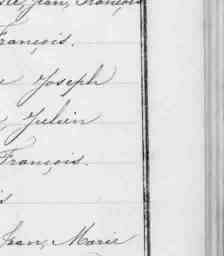 Jean, François
François.
Joseph
Julien
François.
Jean, Marie